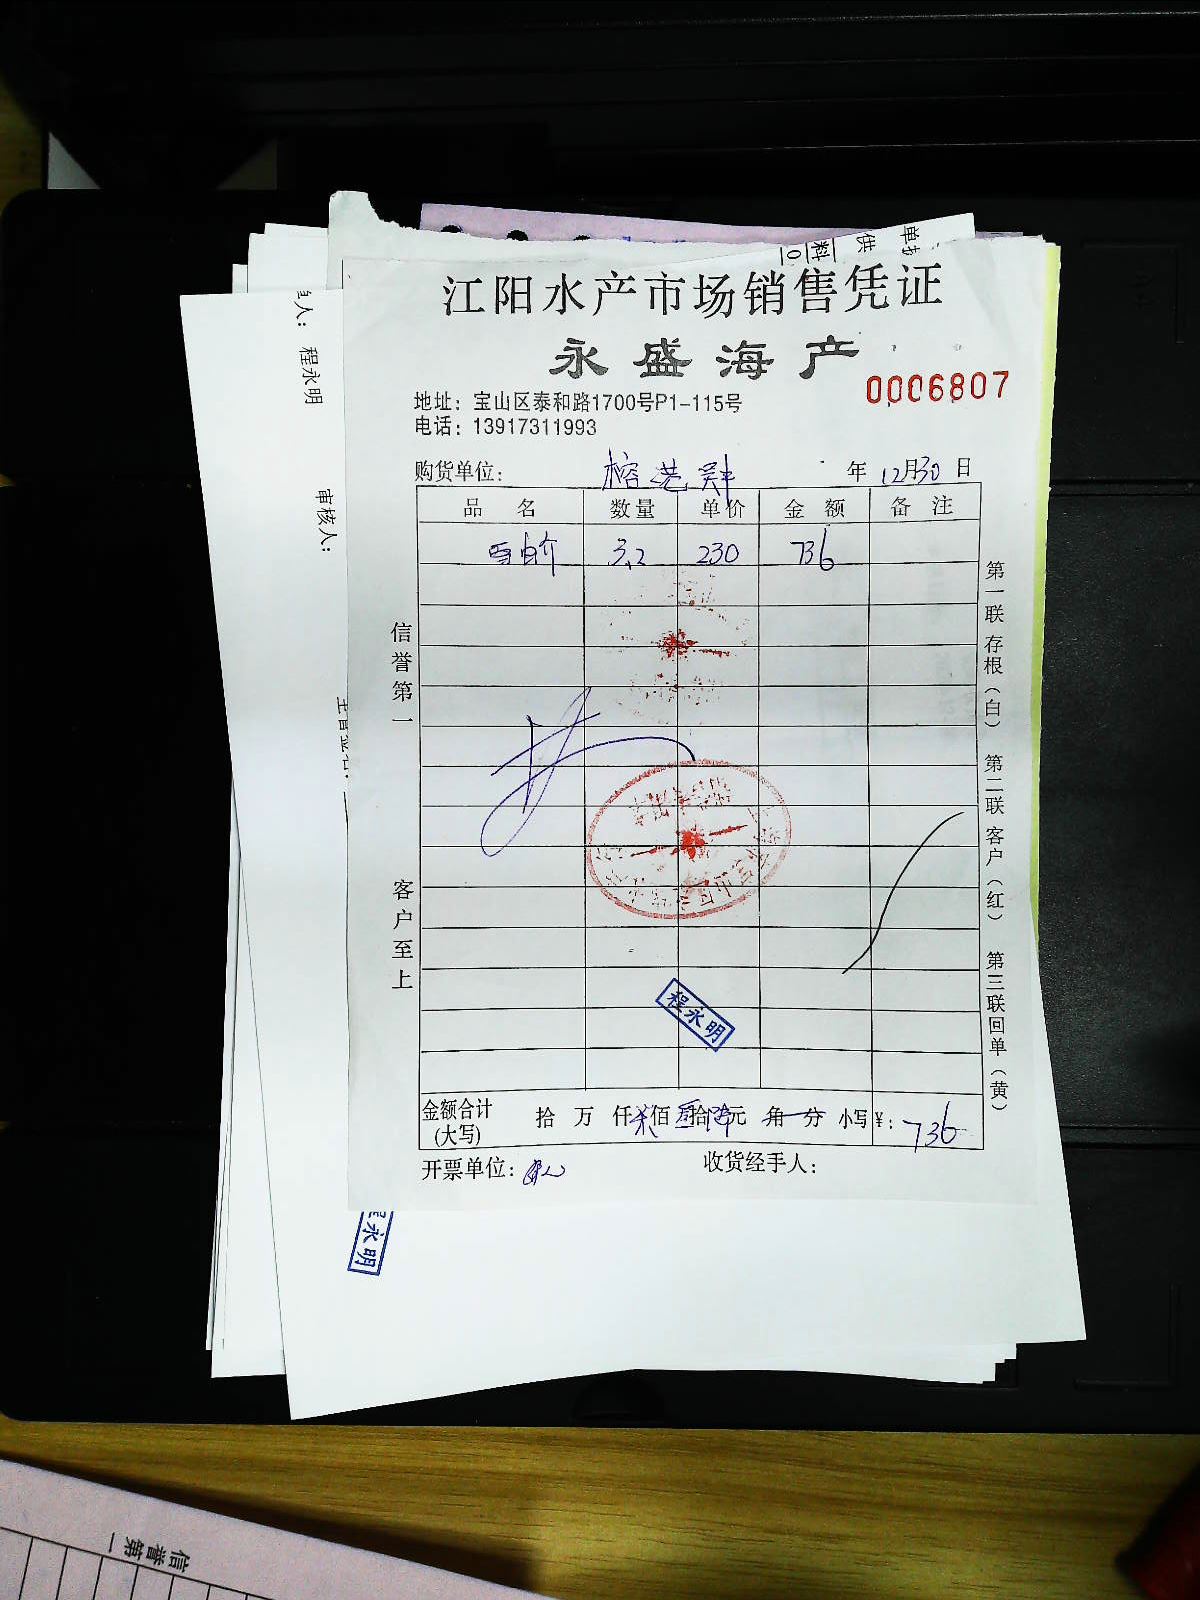 单
供
料
江阳水产市场销售凭证
永盛海产
0006807
地址：宝山区泰和路1700号P1-115号
电话：13917311993
购货单位： 榕港 年 12月30日
品名 数量 单价 金额 备注
3.2 230 736
信誉第一
客户至上
第一联存根（白） 第二联客户（红） 第三联回单（黄）
程永明
金额合计
(大写) 拾 万 仟 佰 拾 元 角 分 小写¥：736
开票单位： 收货经手人：
人：程永明
审核人：
程永明
信誉第一